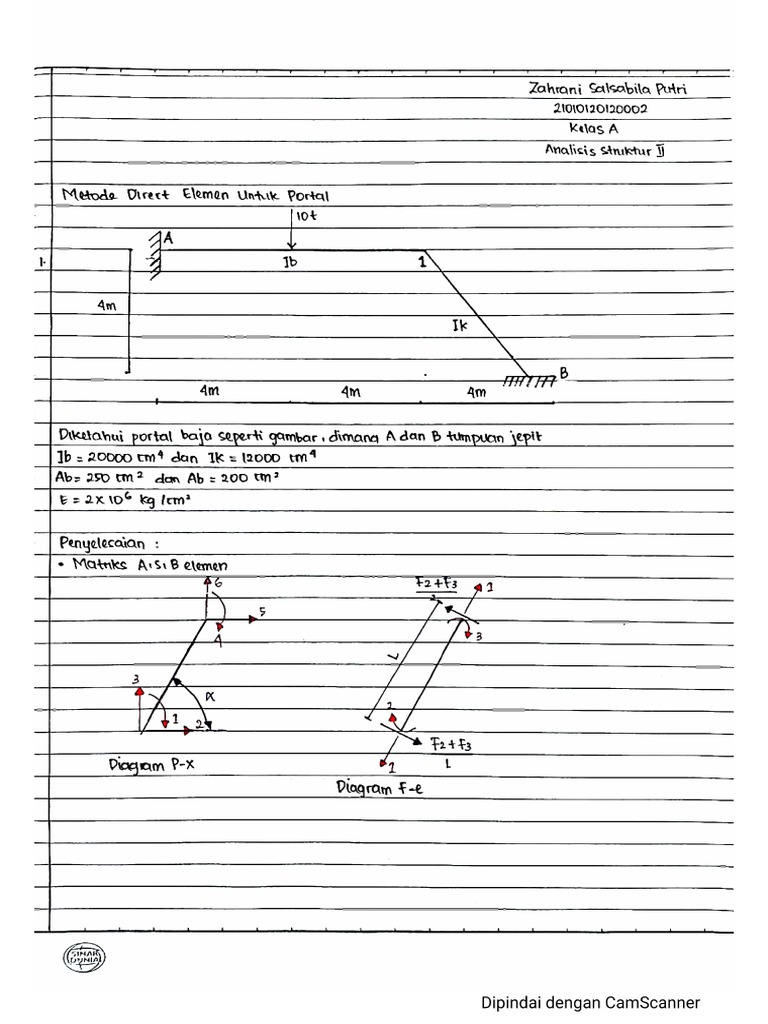 Zahrani Salsabila Putri
21010120120002
Kelas A
Analisis Struktur II
Metode Direct Elemen Untuk Portal
10t
A
1.
Ib
1
4m
Ik
B
4m
4m
4m
Diketahui portal baja seperti gambar, dimana A dan B tumpuan jepit
Ib = 20000 cm⁴ dan Ik = 12000 cm⁴
Ab = 250 cm² dan Ab = 200 cm²
E = 2 x 10⁶ kg/cm²
Penyelecaian :
• Matriks A, S, B elemen
6
5
4
3
α
1
2
Diagram P-X
F2+F3
1
3
L
2
F2+F3
L
1
Diagram F-e
SINAR
DUNIA
Dipindai dengan CamScanner